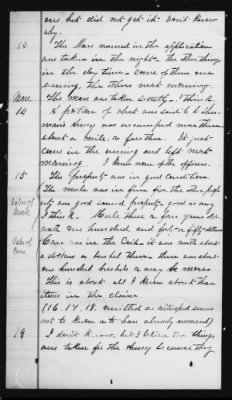 one but did not get it. don't know
why.
13 The Mare named in the application
was taken in the night. The other things
in the day time - some of them one
evening, the others next morning.
Mare The Mare was taken secretly. I think
14 A portion of what was said to be
Army was encamped
about a mile, or further. It just
came in the evening and left next
morning. I knew none of the officers.
15 The property was in good condition.
The mule was in fine fix the other
was good sound property - good as any
Value of Mule I think. Mule three or four years old
worth one hundred and fifty dollars
Value of Corn Corn was in the Crib & it was worth about
a dollar a bushel then. there was about
one hundred bushels or may be more
This is about all I know about the
items in the claim
(16. 17. 18. omitted as witness seems
not to know or to have already answered)
19 I don't know, but I believe the things
was taken for the Army because they